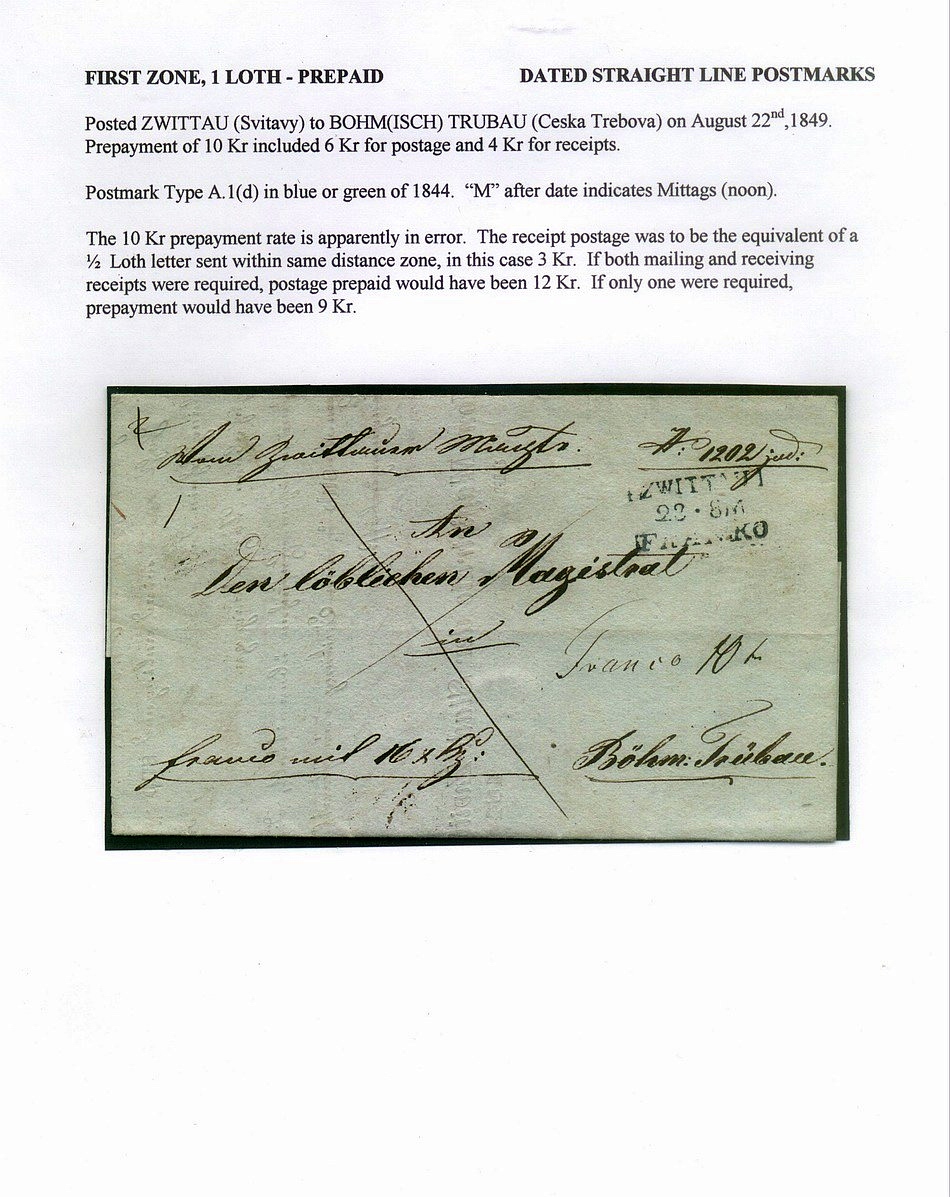 FIRST ZONE, 1 LOTH - PREPAID DATED STRAIGHT LINE POSTMARKS
Posted ZWITTAU (Svitavy) to BOHM(ISCH) TRUBAU (Ceska Trebova) on August 22nd,1849.
Prepayment of 10 Kr included 6 Kr for postage and 4 Kr for receipts.
Postmark Type A.1(d) in blue or green of 1844. “M” after date indicates Mittags (noon).
The 10 Kr prepayment rate is apparently in error. The receipt postage was to be the equivalent of a
½ Loth letter sent within same distance zone, in this case 3 Kr. If both mailing and receiving
receipts were required, postage prepaid would have been 12 Kr. If only one were required,
prepayment would have been 9 Kr.
Vom Zwittauer 1202 jud:
ZWITTAU
FRANKO
An
Den löblichen Magistrat
in
Franco 10
franco mit
Böhm: Trübau.